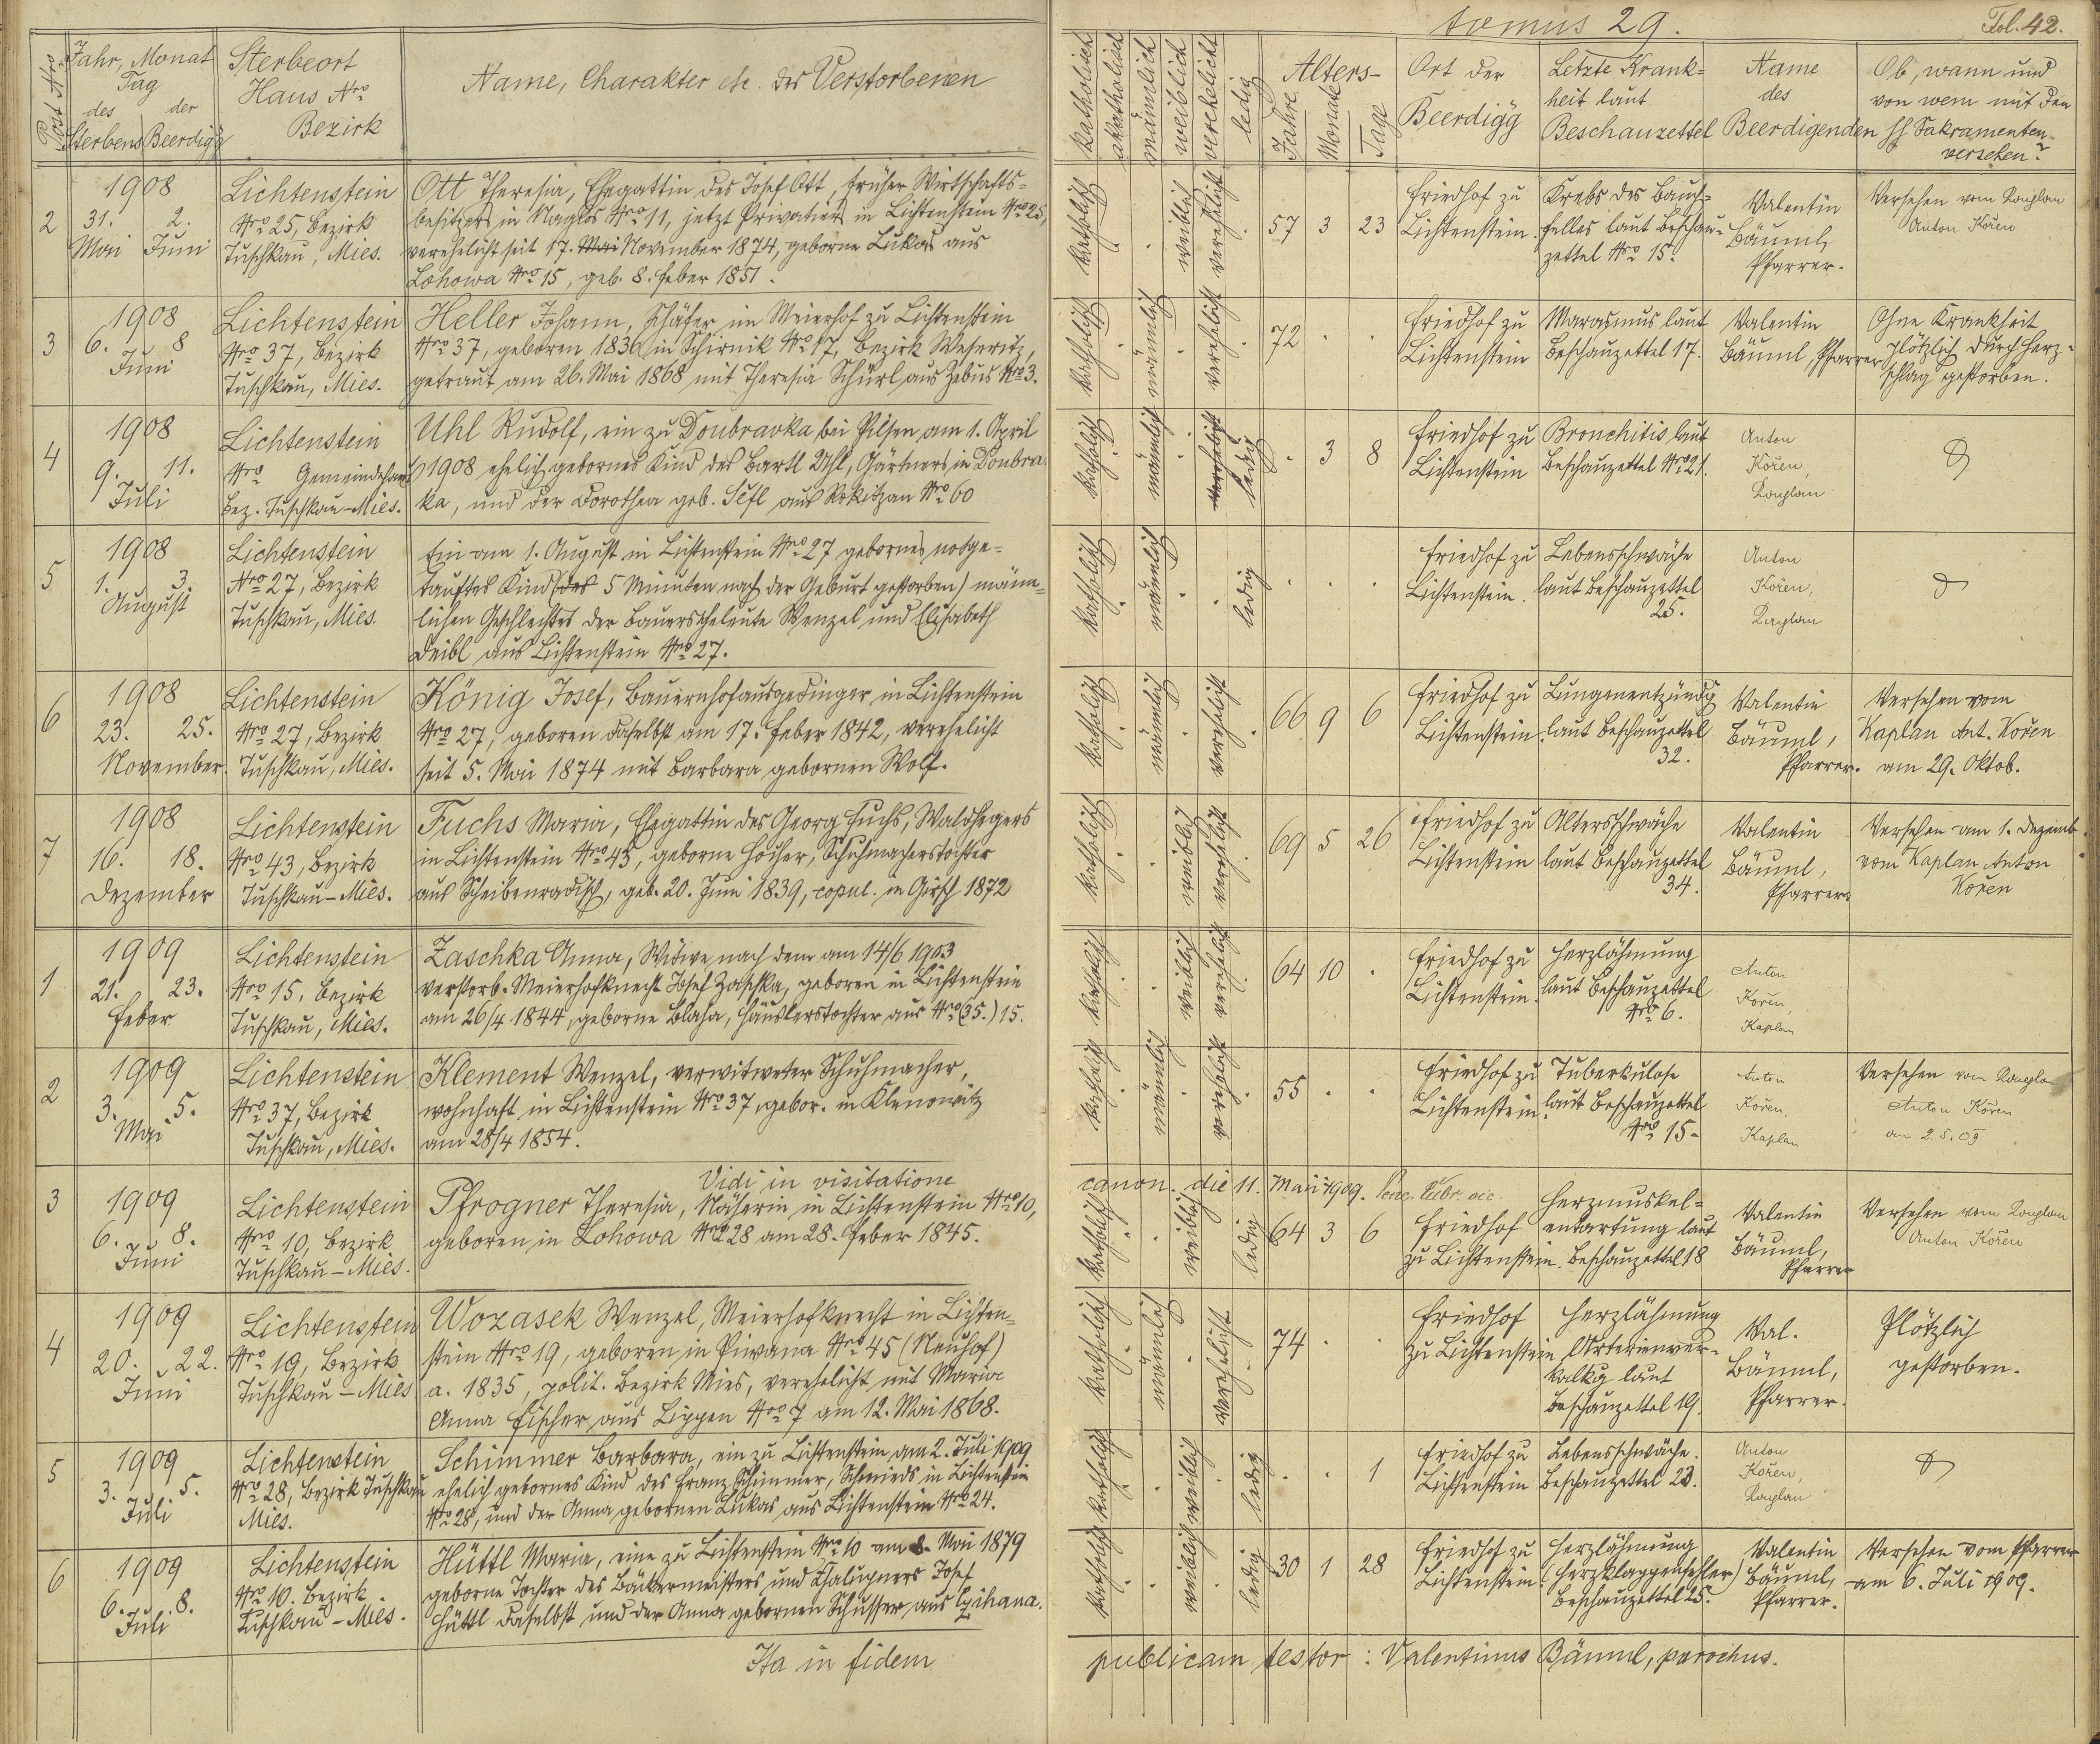 tomus 29.
Fol. 42.
Post Nro
Jahr, Monat
Tag
des der
Sterbens Beerdigg
Sterbeort
Haus Nro
Bezirk
Name, Charakter etc. des Verstorbenen
katholisch
akatholisch
männlich
weiblich
verehelicht
ledig
Alters-
Jahre
Monate
Tag
Ort der
Beerdigg
Letzte Krank=
heit laut
Beschauzettel
Name
des
Beerdigenden
Ob, wann und
von wem mit den
hl Sakramenten
versehen?
2
1908
31. 2.
Mai Juni
Lichtenstein
Nro 25, Bezirk
Tuschkau, Mies.
Ott Theresia, Ehegattin des Josef Ott, früher Wirtschafts=
besitzers in Naglos Nro 11, jetzt Privatiers in Lichtenstein Nro 25,
verehelicht seit 17. Mai November 1874, geborne Lukas aus
Lohowa Nro 15, geb. 8. Feber 1851.
katholisch
weiblich
verehelicht
57 3 23
Friedhof zu
Lichtenstein.
Krebs des Bauch=
felles laut Beschau=
zettel Nro 15.
Valentin
Bäuml,
Pfarrer.
Versehen vom Kaplan
Anton Kořen
3
1908
6. 8
Juni
Lichtenstein
Nro 37, Bezirk
Tuschkau, Mies.
Heller Johann, Schäfer im Meierhof zu Lichtenstein
Nro 37, geboren 1836 in Schirnik Nro 17, Bezirk Weseritz,
getraut am 26. Mai 1868 mit Theresia Schürl aus Zebus Nro 3.
katholisch
männlich
verehelicht
72 . .
Friedhof zu
Lichtenstein
Marasmus laut
Beschauzettel 17.
Valentin
Bäuml, Pfarrer
Ohne Krankheit
plötzlich durch Herz=
schlag gestorben.
4
1908
9. 11.
Juli
Lichtenstein
Nro Gemeindehaus
Bez. Tuschkau-Mies.
Uhl Rudolf, ein zu Doubravka bei Pilsen am 1. April
1908 ehelich gebornes Kind des Bartl Uhl, Gärtners in Doubra
ka, und der Dorothea geb. Šefl aus Rokitzan Nro 60
katholisch
männlich
verehelicht
ledig
. 3 8
Friedhof zu
Lichtenstein
Bronchitis laut
Beschauzettel Nro 21.
Anton
Kořen,
Kaplan
5
1908
1. 3.
August
Lichtenstein
Nro 27, Bezirk
Tuschkau, Mies.
Ein am 1. August in Lichtenstein Nro 27 gebornes nothge=
tauftes Kind (das 5 Minuten nach der Geburt gestorben) männ=
lichen Geschlechtes der Bauerseheleute Wenzel und Elisabeth
Deibl aus Lichtenstein Nro 27.
katholisch
männlich
ledig
. . .
Friedhof zu
Lichtenstein.
Lebensschwäche
laut Beschauzettel
25.
Anton
Kořen,
Kaplan
6
1908
23. 25.
November.
Lichtenstein
Nro 27, Bezirk
Tuschkau, Mies.
König Josef, Bauernhofausgedinger in Lichtenstein
Nro 27, geboren daselbst am 17. Feber 1842, verehelicht
seit 5. Mai 1874 mit Barbara gebornen Wolf.
katholisch
männlich
verehelicht
66 9 6
Friedhof zu
Lichtenstein
Lungenentzündg
laut Beschauzettel
32.
Valentin
Bäuml,
Pfarrer.
Versehen vom
Kaplan Ant. Kořen
am 29. Oktob.
7
1908
16. 18.
Dezember
Lichtenstein
Nro 43, Bezirk
Tuschkau-Mies.
Fuchs Maria, Ehegattin des Georg Fuchs, Waldhegers
in Lichtenstein Nro 43, geborne Hocher, Schuhmacherstochter
aus Scheibenradisch, geb. 20. Juni 1839, copul. in Girsch 1872
katholisch
weiblich
verehelicht
69 5 26
Friedhof zu
Lichtenstein
Altersschwäche
laut Beschauzettel
34.
Valentin
Bäuml,
Pfarrer
Versehen am 1. Dezemb.
vom Kaplan Anton
Kořen
1
1909
21. 23.
Feber
Lichtenstein
Nro 15. Bezirk
Tuschkau, Mies.
Zaschka Anna, Witwe nach dem am 14/6 1903
verstorb. Meierhofknecht Josef Zaschka, geboren in Lichtenstein
am 26/4 1844, geborne Blaha, Häuslerstochter aus Nro (35.) 15.
katholisch
weiblich
verehelicht
64 10 .
Friedhof zu
Lichtenstein.
Herzlähmung
laut Beschauzettel
Nro 6.
Anton
Kořen,
Kaplan
2
1909
3. 5.
Mai
Lichtenstein
Nro 37, Bezirk
Tuschkau, Mies.
Klement Wenzel, verwitweter Schuhmacher,
wohnhaft in Lichtenstein Nro 37, gebor. in Klenowitz
am 28/4 1854.
katholisch
männlich
verehelicht
55 . .
Friedhof zu
Lichtenstein.
Tuberkulose
laut Beschauzettel
Nro 15.
Anton
Kořen,
Kaplan
Versehen vom Kaplan
Anton Kořen
am 2.5.09
Vidi in visitatione
canon. die 11. Maii 1909.
3
1909
6. 8.
Juni
Lichtenstein
Nro 10, Bezirk
Tuschkau-Mies.
Pfrogner Theresia, Näherin in Lichtenstein Nro 10,
geboren in Lohowa Nro 28 am 28. Feber 1845.
katholisch
weiblich
ledig
64 3 6
Friedhof
zu Lichtenstein.
Herzmuskel=
entartung laut
Beschauzettel 18
Valentin
Bäuml,
Pfarrer
Versehen vom Kaplan
Anton Kořen
4
1909
20. 22.
Juni
Lichtenstein
Nro 19, Bezirk
Tuschkau-Mies
Wozasek Wenzel, Meierhofknecht in Lichten=
stein Nro 19, geboren in Piwana Nro 45 (Neuhof)
a. 1835, polit. Bezirk Mies, verehelicht mit Maria
Anna Fischer aus Lippen Nro 7 am 12. Mai 1868.
katholisch
männlich
verehelicht
74 . .
Friedhof
zu Lichtenstein
Herzlähmung
Arterienver=
kalkg laut
Beschauzettel 19.
Val.
Bäuml,
Pfarrer.
Plötzlich
gestorben.
5
1909
3. 5.
Juli
Lichtenstein
Nro 28, Bezirk Tuschkau
Mies.
Schimmer Barbara, ein zu Lichtenstein am 2. Juli 1909
ehelich gebornes Kind des Franz Schimmer, Schmieds in Lichtenstein
Nro 28, und der Anna gebornen Lukas aus Lichtenstein Nro 24.
katholisch
weiblich
ledig
. . 1
Friedhof zu
Lichtenstein
Lebensschwäche.
Beschauzettel 23.
Anton
Kořen,
Kaplan
6
1909
6. 8.
Juli
Lichtenstein
Nro 10. Bezirk
Tuschkau-Mies.
Hüttl Maria, eine zu Lichtenstein Nro 10 am 8. Mai 1879
geborne Tochter des Bäckermeisters und Chalupners Josef
Hüttl daselbst und der Anna gebornen Schusser aus Czihana.
katholisch
weiblich
ledig
30 1 28
Friedhof zu
Lichtenstein
Herzlähmung
(Herzklappenfehler)
Beschauzettel 25.
Valentin
Bäuml,
Pfarrer.
Versehen vom Pfarrer
am 6. Juli 1909.
Ita in fidem
publicam testor: Valentinus Bäuml, parochus.